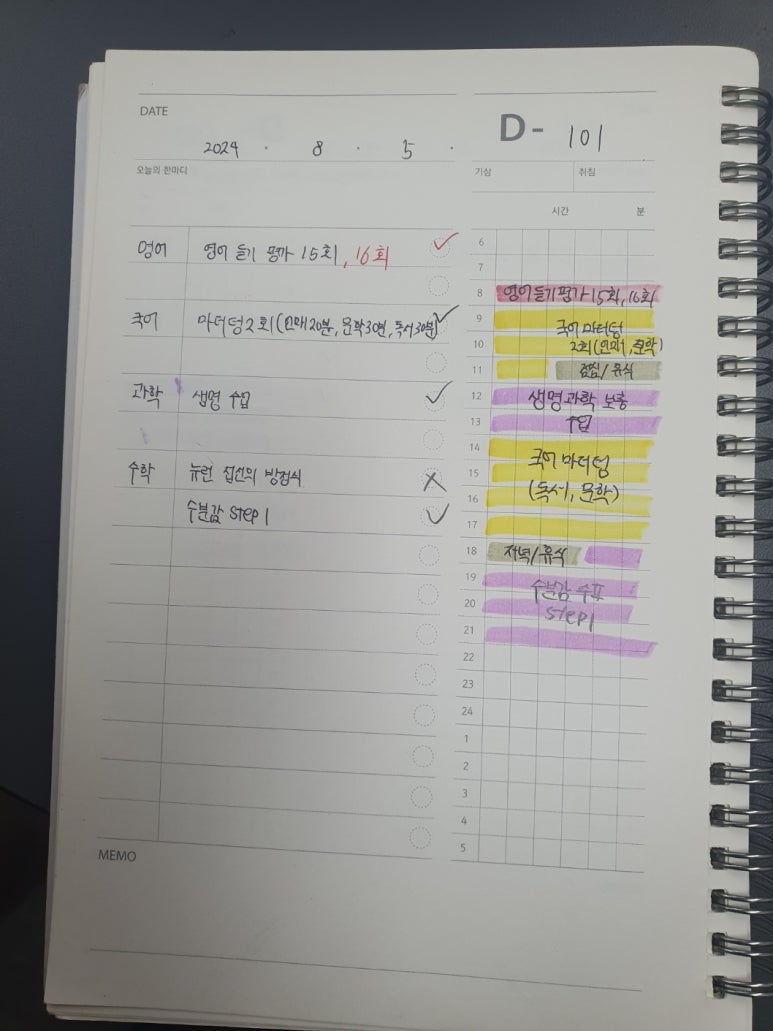 DATE
2024 . 8 . 5 .
D- 101
오늘의 한마디
기상
취침
시간 분
영어 영어 듣기 평가 15회, 16회
국어 마더텅 2회 (언매20분, 문학30분, 독서30분)
과학 생명 수업
수학 뉴런 접선의 방정식
수분감 step 1
6
7
8 영어듣기평가 15회, 16회
9 국어 마더텅
10 2회(언매, 문학)
11 점심/휴식
12 생명과학 보충
13 수업
14 국어 마더텅
15
16 (독서, 문학)
17
18 저녁/휴식
19 수분감 수II
20 step1
21
22
23
24
1
2
3
4
5
MEMO